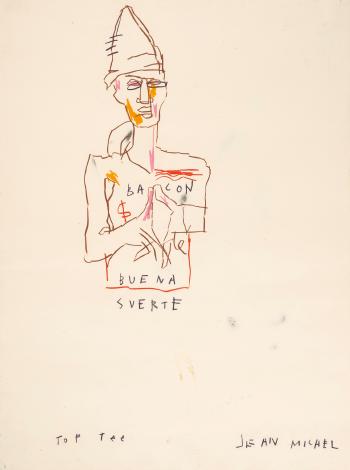 BA CON
$
BUENA
SVERTE
TOP Tee
JEAN MICHEL